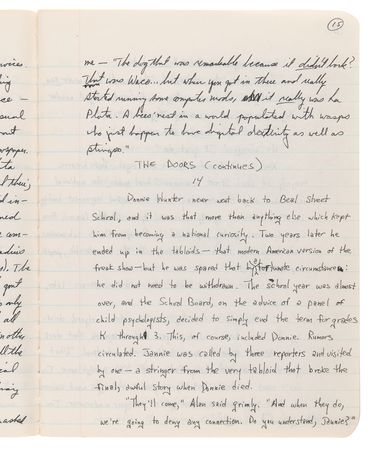 15
me — The dog that was remarkable because it didn't bark?
That was Waco... but when you got in there and really
started running some computer mods, it really was La
Plata. A bees' nest in a world populated with wasps
who just happen to have digital dexterity as well as
stingers."
THE DOORS (continues)
14
Donnie Hunter never went back to Beal Street
School, and it was that more than anything else which kept
him from becoming a national curiosity. Two years later he
ended up in the tabloids — that modern American version of the
freak show — but he was spared that circumstance:
he did not need to be withdrawn. The school year was almost
over, and the School Board, on the advice of a panel of
child psychologists, decided to simply end the term for grades
K through 3. This, of course, included Donnie. Rumors
circulated. Jannie was called by three reporters and visited
by one — a stringer from the very tabloid that broke the
final, awful story when Donnie died.
"They'll come," Alan said grimly. "And when they do,
we're going to deny any connection. Do you understand, Jannie?"